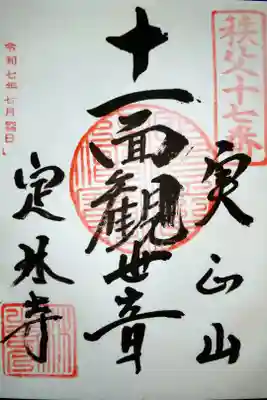 秩父十七番
実正山
十一面観世音
定林寺
令和七年七月吉日